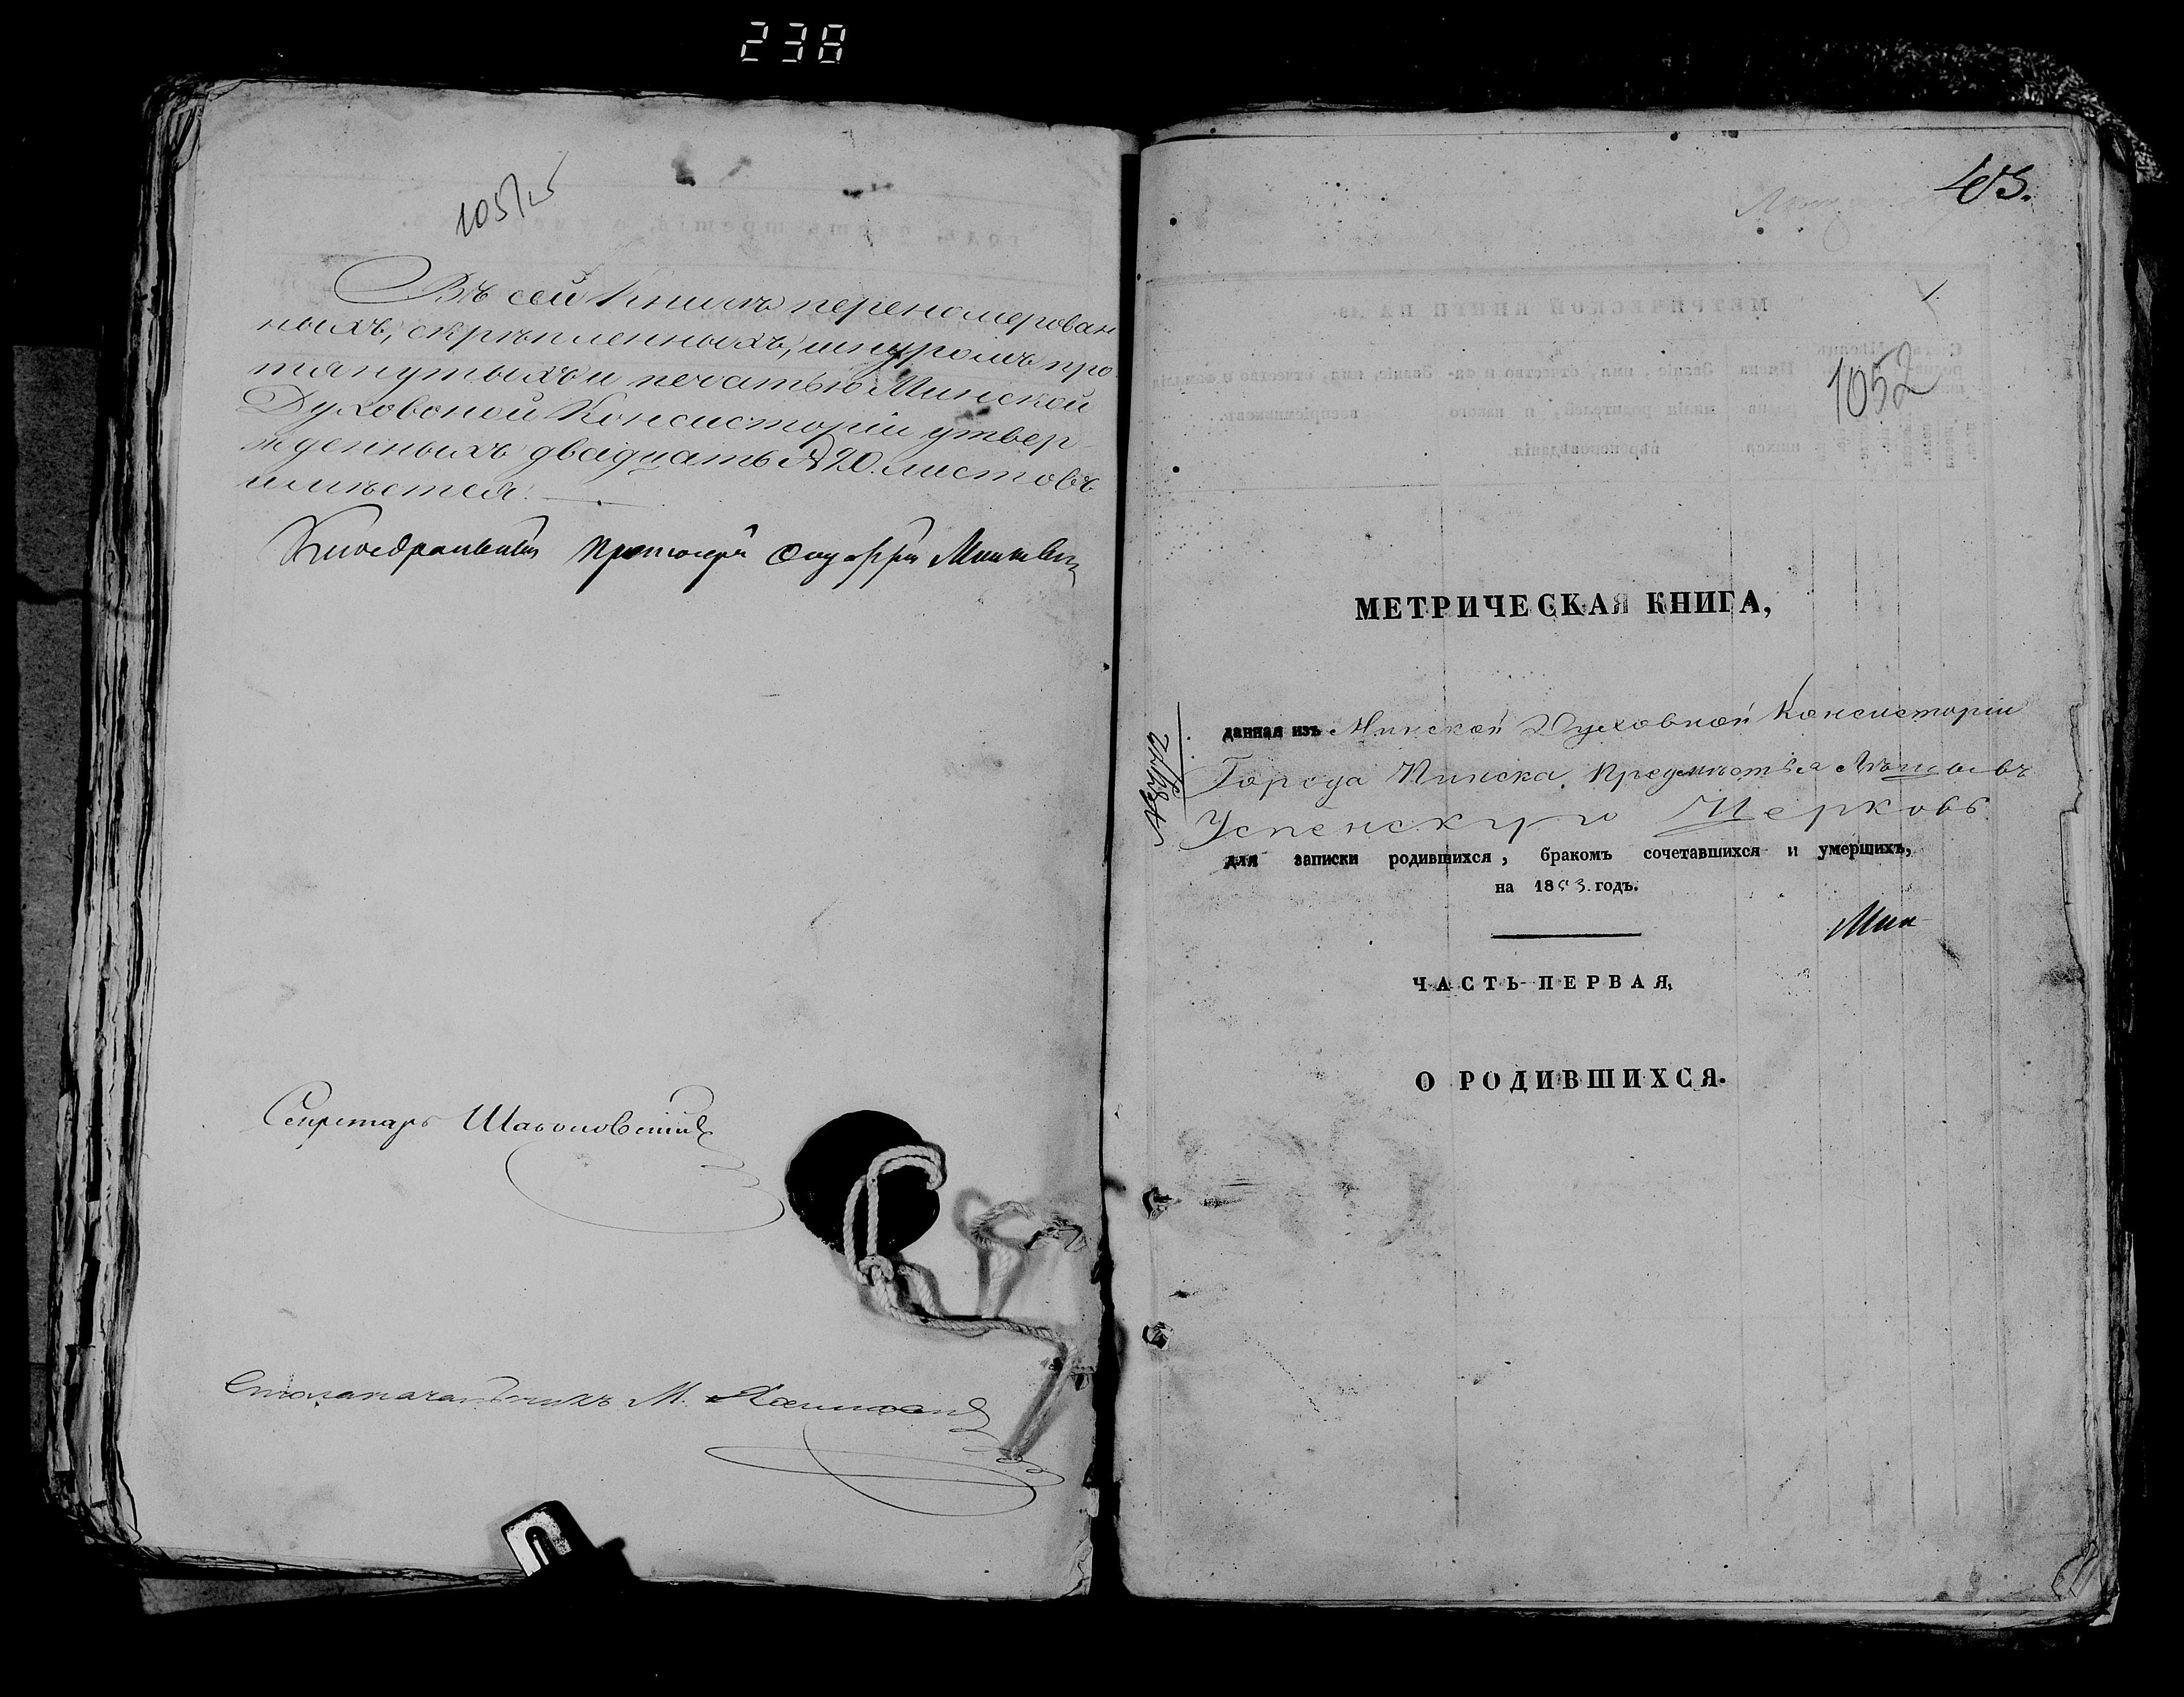 238
Въ сей Книгѣ перенумерован
ныхъ, скрѣпленныхъ, шнуромъ про
тянутыхъ и печатью Минской
Духовоной Консисторіи утвер-
жденныхъ двадцать 20. листовъ
имѣется.
Каѳедральный Протоіерей
Секретарь
Столоначальникъ М.
403.
1.
1052
МЕТРИЧЕСКАЯ КНИГА,
данная изъ Минской Духовной Консисторіи
Города Пинска Предмѣстья
Успенскую Церковь
для записки родившихся, бракомъ сочетавшихся и умершихъ,
на 1853. годъ.
Мин-
ЧАСТЬ ПЕРВАЯ,
О РОДИВШИХСЯ.